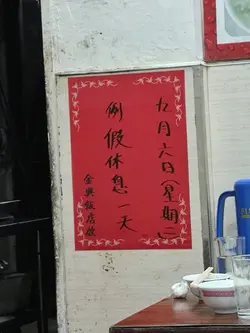 九月六日(星期二)
例假休息一天
金興飯店啟